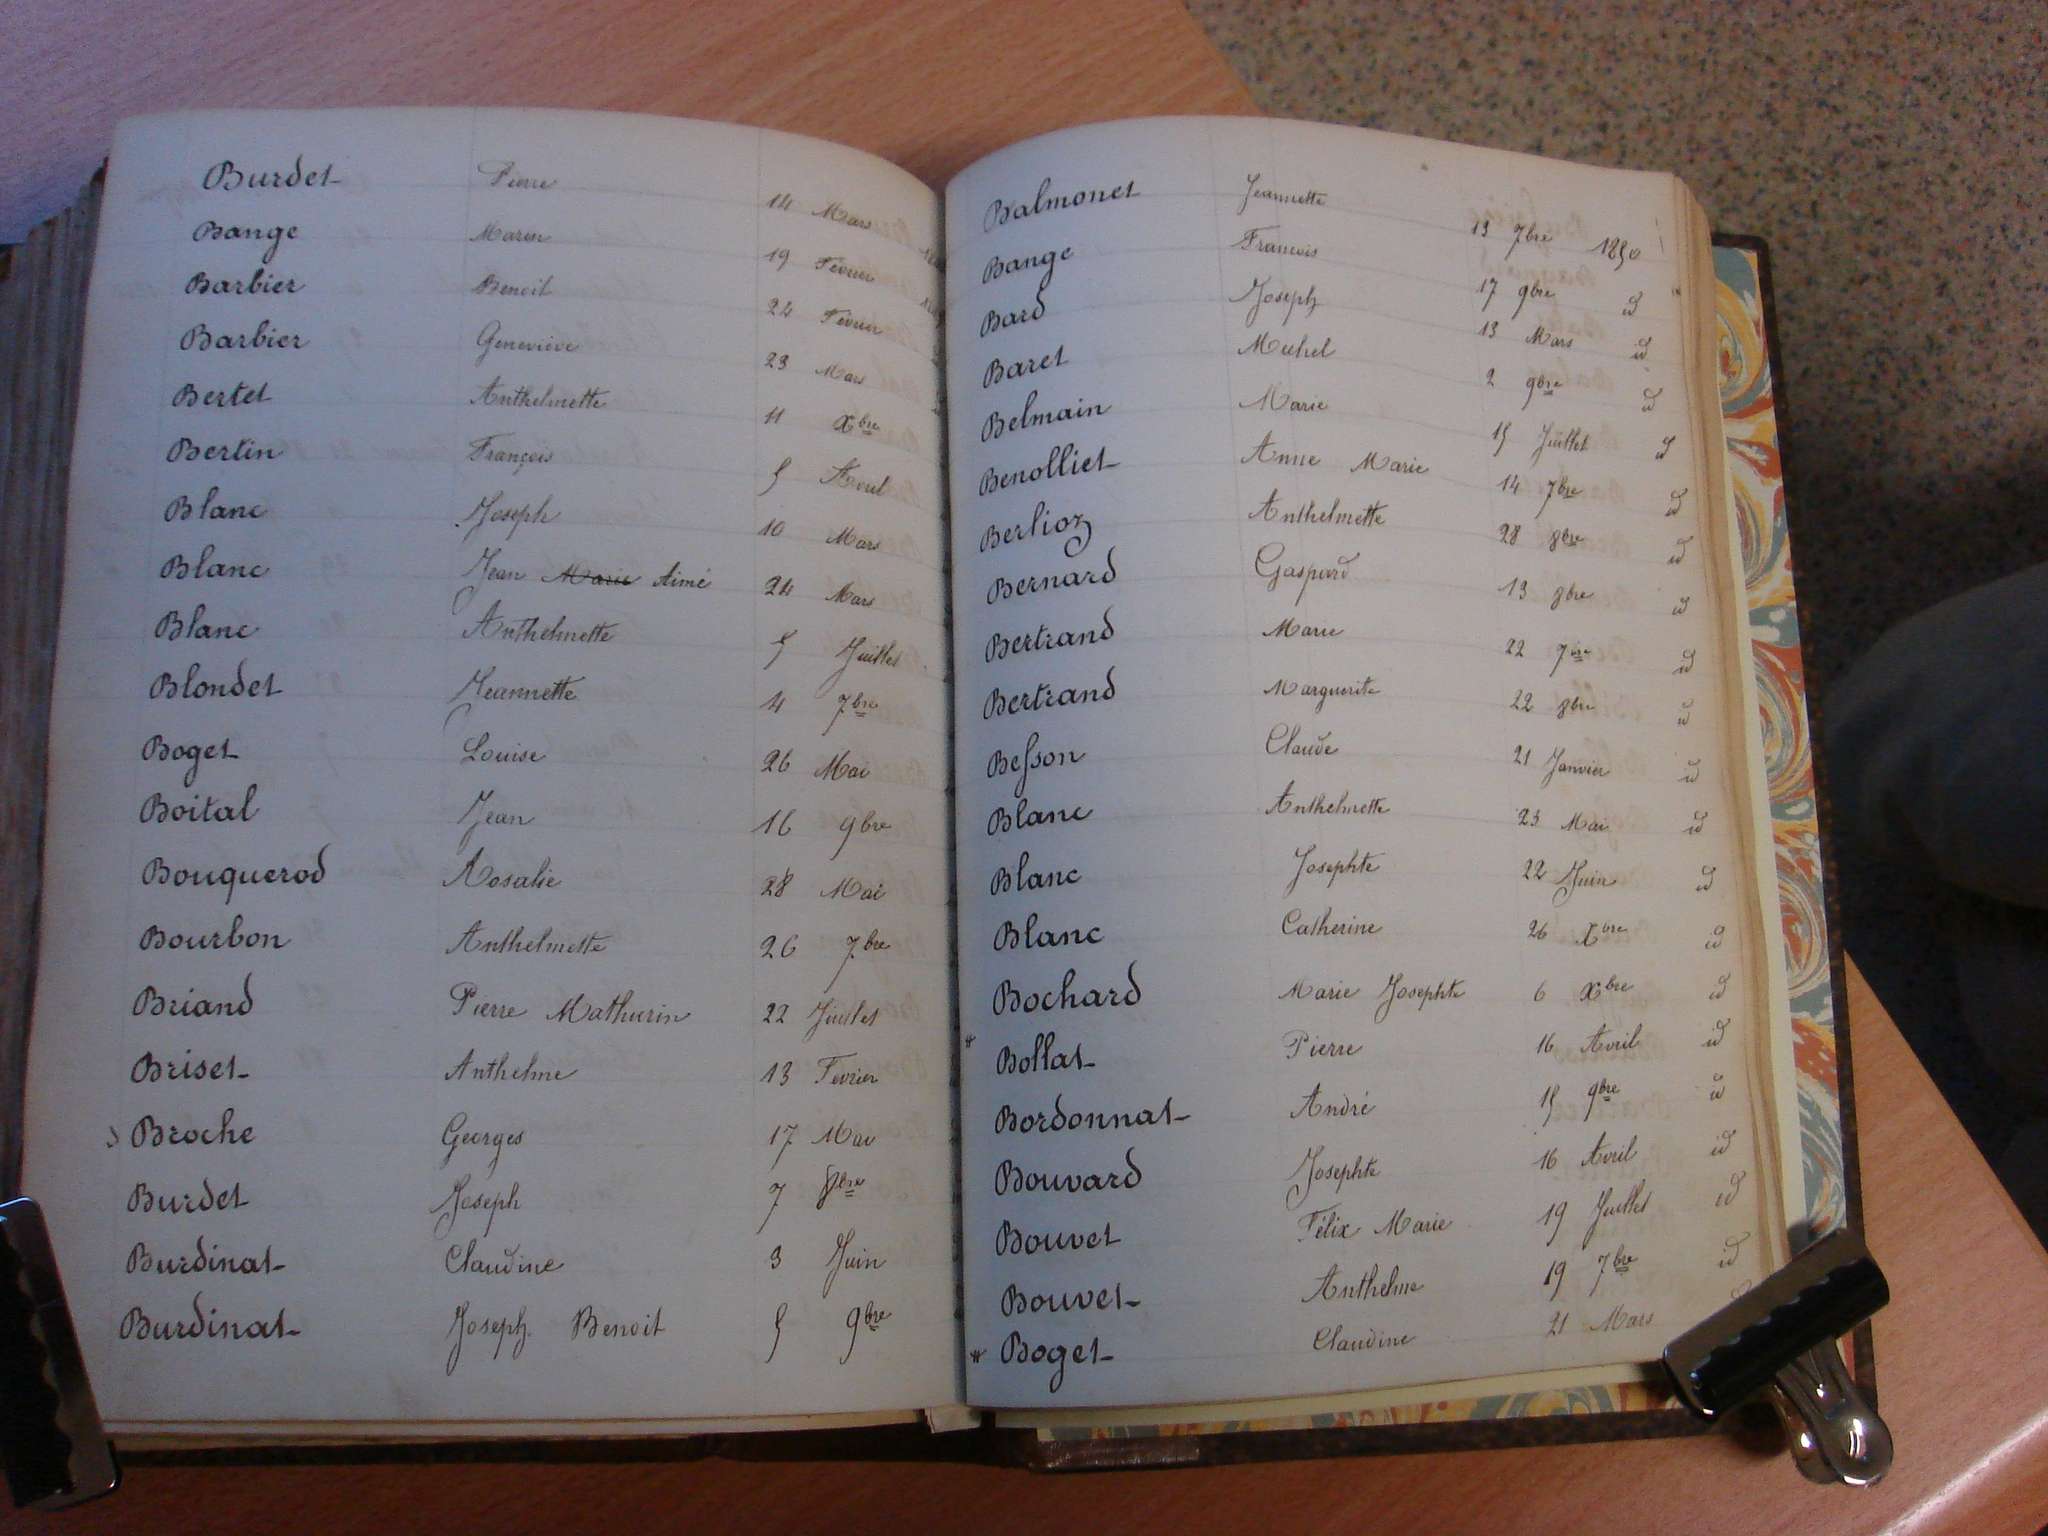 Burdet Pierre 14 Mars
Bange Marin 19 Février
Barbier Benoit 22 Février
Barbier Geneviève 23 Mars
Bertet Anthelmette 11 Xbre
Bertin François 5 Avril
Blanc Joseph 10 Mars
Blanc Jean Marie Aimé 24 Mars
Blanc Anthelmette 5 Juillet
Blondet Jeannette 4 7bre
Boget Louise 26 Mai
Boital Jean 16 9bre
Bouquerod Rosalie 28 Mai
Bourbon Anthelmette 26 7bre
Briand Pierre Mathurin 22 Juillet
Briset Anthelme 13 Fevrier
Broche Georges 17 Mai
Burdet Joseph 7 8bre
Burdinat Claudine 3 Juin
Burdinat Joseph Benoit 5 9bre
Balmonet Jeannette 13 7bre 1850
Bange Francois 17 9bre id
Bard Joseph 13 Mars id
Baret Michel 2 9bre id
Belmain Marie 15 Juillet id
Benolliet Anne Marie 14 7bre id
Berlioz Anthelmette 28 8bre id
Bernard Gaspard 13 8bre id
Bertrand Marie 22 7bre id
Bertrand Marguerite 22 8bre id
Besson Claude 21 Janvier id
Blanc Anthelmette 23 Mai id
Blanc Josephte 22 Juin id
Blanc Catherine 26 Xbre id
Bochard Marie Josephte 6 Xbre id
Bollat Pierre 16 Avril id
Bordonnat André 15 9bre id
Bouvard Josephte 16 Avril id
Bouvet Félix Marie 19 Juillet id
Bouvet Anthelme 19 7bre id
Boget Claudine 21 Mars